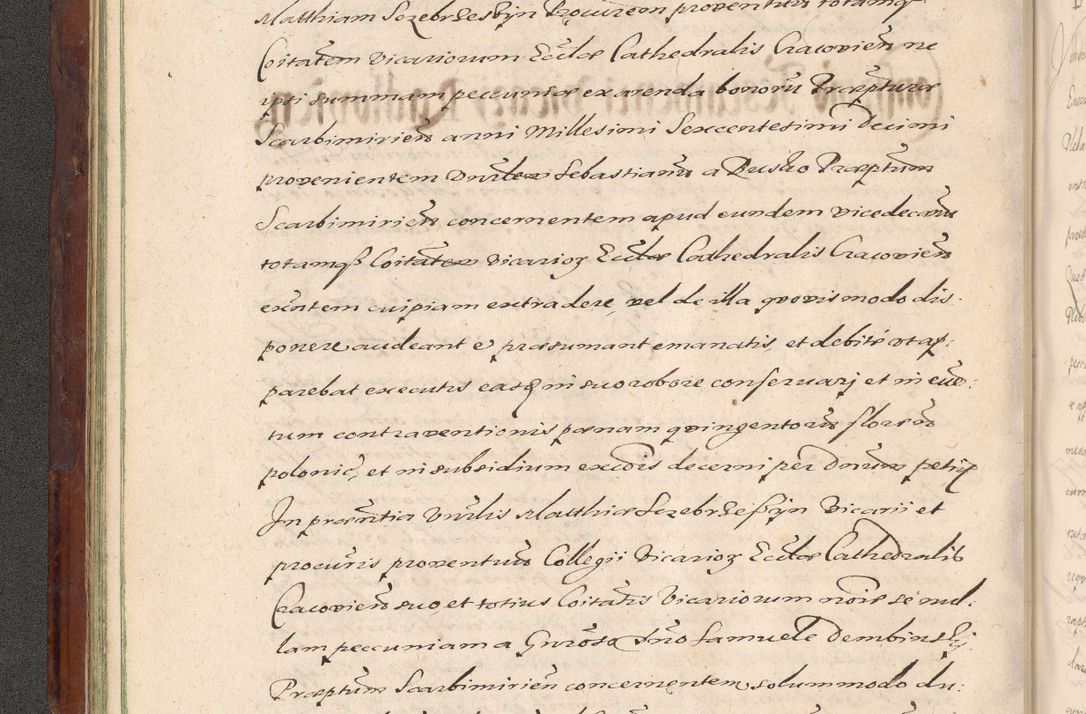 Matthiam Sczebrzeszyn Procurem proventuu totamq
Coitatem Vicariorum Eccłæ Cathedralis Cracovien ne
ipsi summam pecuniæ ex arenda bonorũ Præpturæ
Scarbimirien anni Millesimi Sexcentesimi Decimi
provenientem Vnrlem Sebastianũ a Busko Præptum
Scarbimirien concernentem apud eundem vicedecanũ
totamq Coitatem Vicarioꝝ Eccłæ Cathedralis Cracovien
exntem cuipiam extradere, vel de illa qvovis modo dis:
ponere audeant e præsumant emanatis, et debite vt ap:
parebat executis easq in suo robore conservarj et in eue:
tum contraventionis pænam qvingentorũ florenũ
polonic, et in subsidium excois decerni per Dnum petiỹt
In præntia Vnrlis Matthiæ Sczebrzeßyn Vicarii et
procuris proventuũ Collegii Vicarioꝝ Eccłæ Cathedralis
Cracovien suo, et totius Coitatis Vicariorum noie se nul:
lam pecuniam a Gnroso Dno Samuele Dembinskj
Præptum Scarbimirien concernentem, solummodo du: